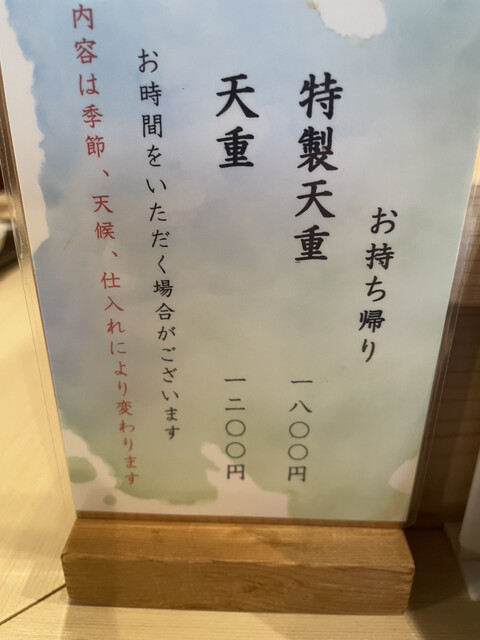 お持ち帰り
特製天重 一八〇〇円
天重 一二〇〇円
お時間をいただく場合がございます
内容は季節、天候、仕入れにより変わります